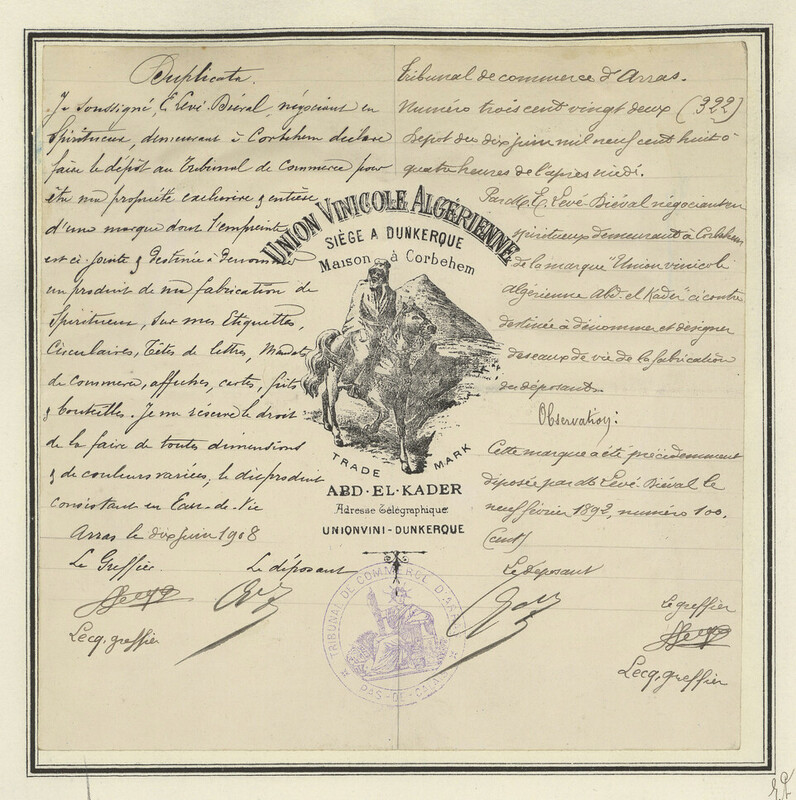 Duplicata.
Je soussigné, E. Levé-Biéval, négociant en
Spiritueux, demeurant à Corbehem déclare
faire le dépôt au Tribunal de Commerce pour
être ma propriété exclusive & entière
d'une marque dont l'empreinte
est ci-jointe & destinée à dénommer
un produit de ma fabrication de
Spiritueux, sur mes Etiquettes,
Circulaires, Têtes de lettres, Mandats
de commerce, affiches, cartes, fûts
& bouteilles. Je me réserve le droit
de la faire de toutes dimensions
& de couleurs variées, le dit produit
consistant en Eau-de-Vie
Arras le dix juin 1908
Le Greffier. Le déposant
Lecq, greffier
UNION VINICOLE ALGÉRIENNE
SIÈGE A DUNKERQUE
Maison à Corbehem
TRADE MARK
ABD-EL-KADER
Adresse Télégraphique:
UNIONVINI-DUNKERQUE
TRIBUNAL DE COMMERCE D'ARRAS
PAS-DE-CALAIS
Tribunal de commerce d'Arras.
Numéro trois cent vingt deux (322)
Dépôt du dix juin mil neuf cent huit à
quatre heures de l'après midi.
Par M. E. Levé-Biéval négociant en
spiritueux demeurant à Corbehem
de la marque "Union vinicole
Algérienne Abd-el-Kader" ci contre
destinée à dénommer et désigner
des eaux de vie de la fabrication
du déposant.
Observation:
Cette marque a été précédemment
déposée par M. Levé-Biéval le
neuf février 1892, numéro 100.
(cent)
Le déposant
Le greffier
Lecq, greffier